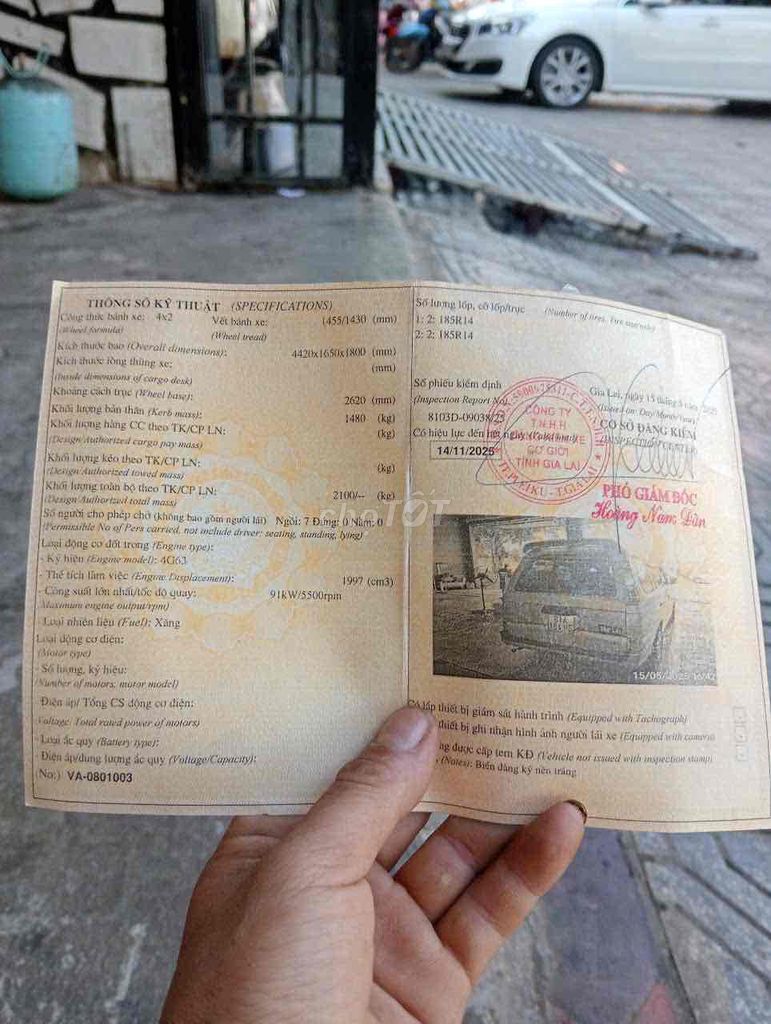 THÔNG SỐ KỸ THUẬT (SPECIFICATIONS)
Công thức bánh xe: 4x2 Vết bánh xe: 1455/1430 (mm)
(Wheel formula) (Wheel tread)
Kích thước bao (Overall dimensions): 4420x1650x1800 (mm)
Kích thước lòng thùng xe: (mm)
(Inside dimensions of cargo desk)
Khoảng cách trục (Wheel base): 2620 (mm)
Khối lượng bản thân (Kerb mass): 1480 (kg)
Khối lượng hàng CC theo TK/CP LN: (kg)
(Design/Authorized cargo pay mass)
Khối lượng kéo theo TK/CP LN: (kg)
(Design/Authorized towed mass)
Khối lượng toàn bộ theo TK/CP LN: 2100/-- (kg)
(Design/Authorized total mass)
Số người cho phép chở (không bao gồm người lái) Ngồi: 7 Đứng: 0 Nằm: 0
(Permissible No of Pers carried, not include driver: seating, standing, lying)
Loại động cơ đốt trong (Engine type):
- Ký hiệu (Engine model): 4G63
- Thể tích làm việc (Engine Displacement): 1997 (cm3)
- Công suất lớn nhất/tốc độ quay: 91kW/5500rpm
(Maximum engine output/rpm)
- Loại nhiên liệu (Fuel): Xăng
Loại động cơ điện:
(Motor type)
- Số lượng, ký hiệu:
(Number of motors, motor model)
Điện áp/ Tổng CS động cơ điện:
(Voltage/ Total rated power of motors)
- Loại ắc quy (Battery type):
Điện áp/dung lượng ắc quy (Voltage/Capacity):
(No:) VA-0801003
Số lượng lốp, cỡ lốp/trục (Number of tires, Tire size/axle)
1: 2: 185R14
2: 2: 185R14
Số phiếu kiểm định
(Inspection Report No)
8103D-09038/25
Có hiệu lực đến hết ngày
14/11/2025
Gia Lai, ngày 15 tháng 5 năm 2025
(Issued on: Day/Month/Year)
CƠ SỞ ĐĂNG KIỂM
(INSPECTION CENTER)
CÔNG TY
T.N.H.H
CƠ GIỚI
TỈNH GIA LAI
TP.PLEIKU - T.GIA LAI
PHÓ GIÁM ĐỐC
Hoàng Nam Dân
chợTỐT
15/05/2025 16:42
Có lắp thiết bị giám sát hành trình (Equipped with Tachograph)
thiết bị ghi nhận hình ảnh người lái xe (Equipped with camera)
được cấp tem KĐ (Vehicle not issued with inspection stamp)
(Notes): Biển đăng ký nền trắng